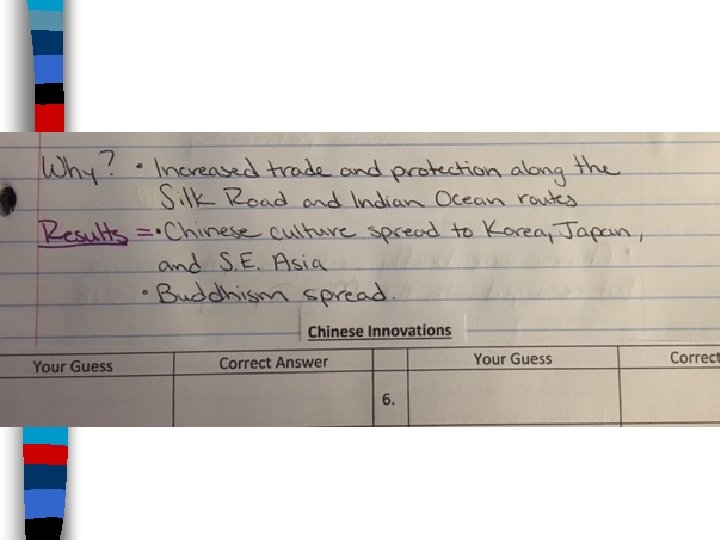 Why? • Increased trade and protection along the
Silk Road and Indian Ocean routes
Results = • Chinese culture spread to Korea, Japan,
and S.E. Asia
• Buddhism spread.
Chinese Innovations
Your Guess Correct Answer Your Guess Correct
6.